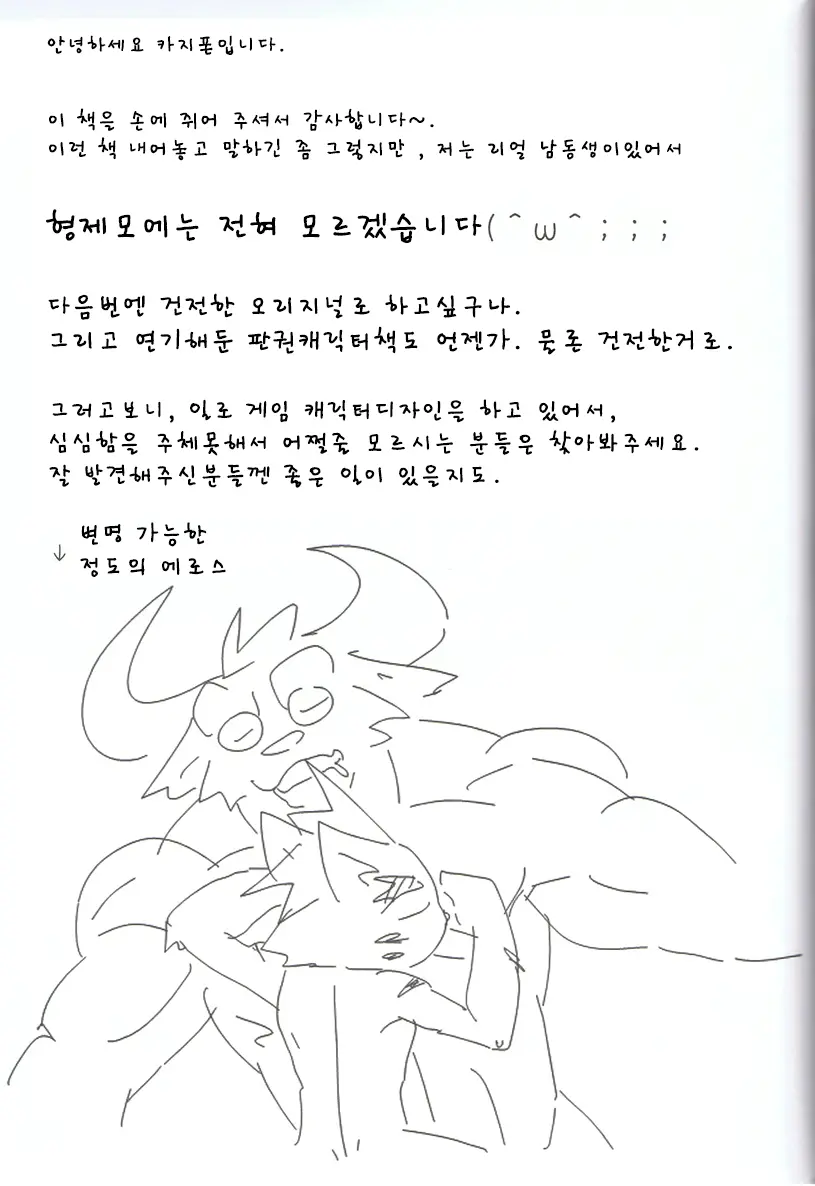 안녕하세요 카지폰입니다.
이 책을 손에 쥐어 주셔서 감사합니다~.
이런 책 내어놓고 말하긴 좀 그렇지만 , 저는 리얼 남동생이있어서
형제모에는 전혀 모르겠습니다(＾ω＾；；；
다음번엔 건전한 오리지널로 하고싶구나.
그리고 연기해둔 판권캐릭터책도 언젠가. 물론 건전한거로.
그러고보니, 일로 게임 캐릭터디자인을 하고 있어서,
심심함을 주체못해서 어쩔줄 모르시는 분들은 찾아봐주세요.
잘 발견해주신분들껜 좋은 일이 있을지도.
변명 가능한
↓ 정도의 에로스